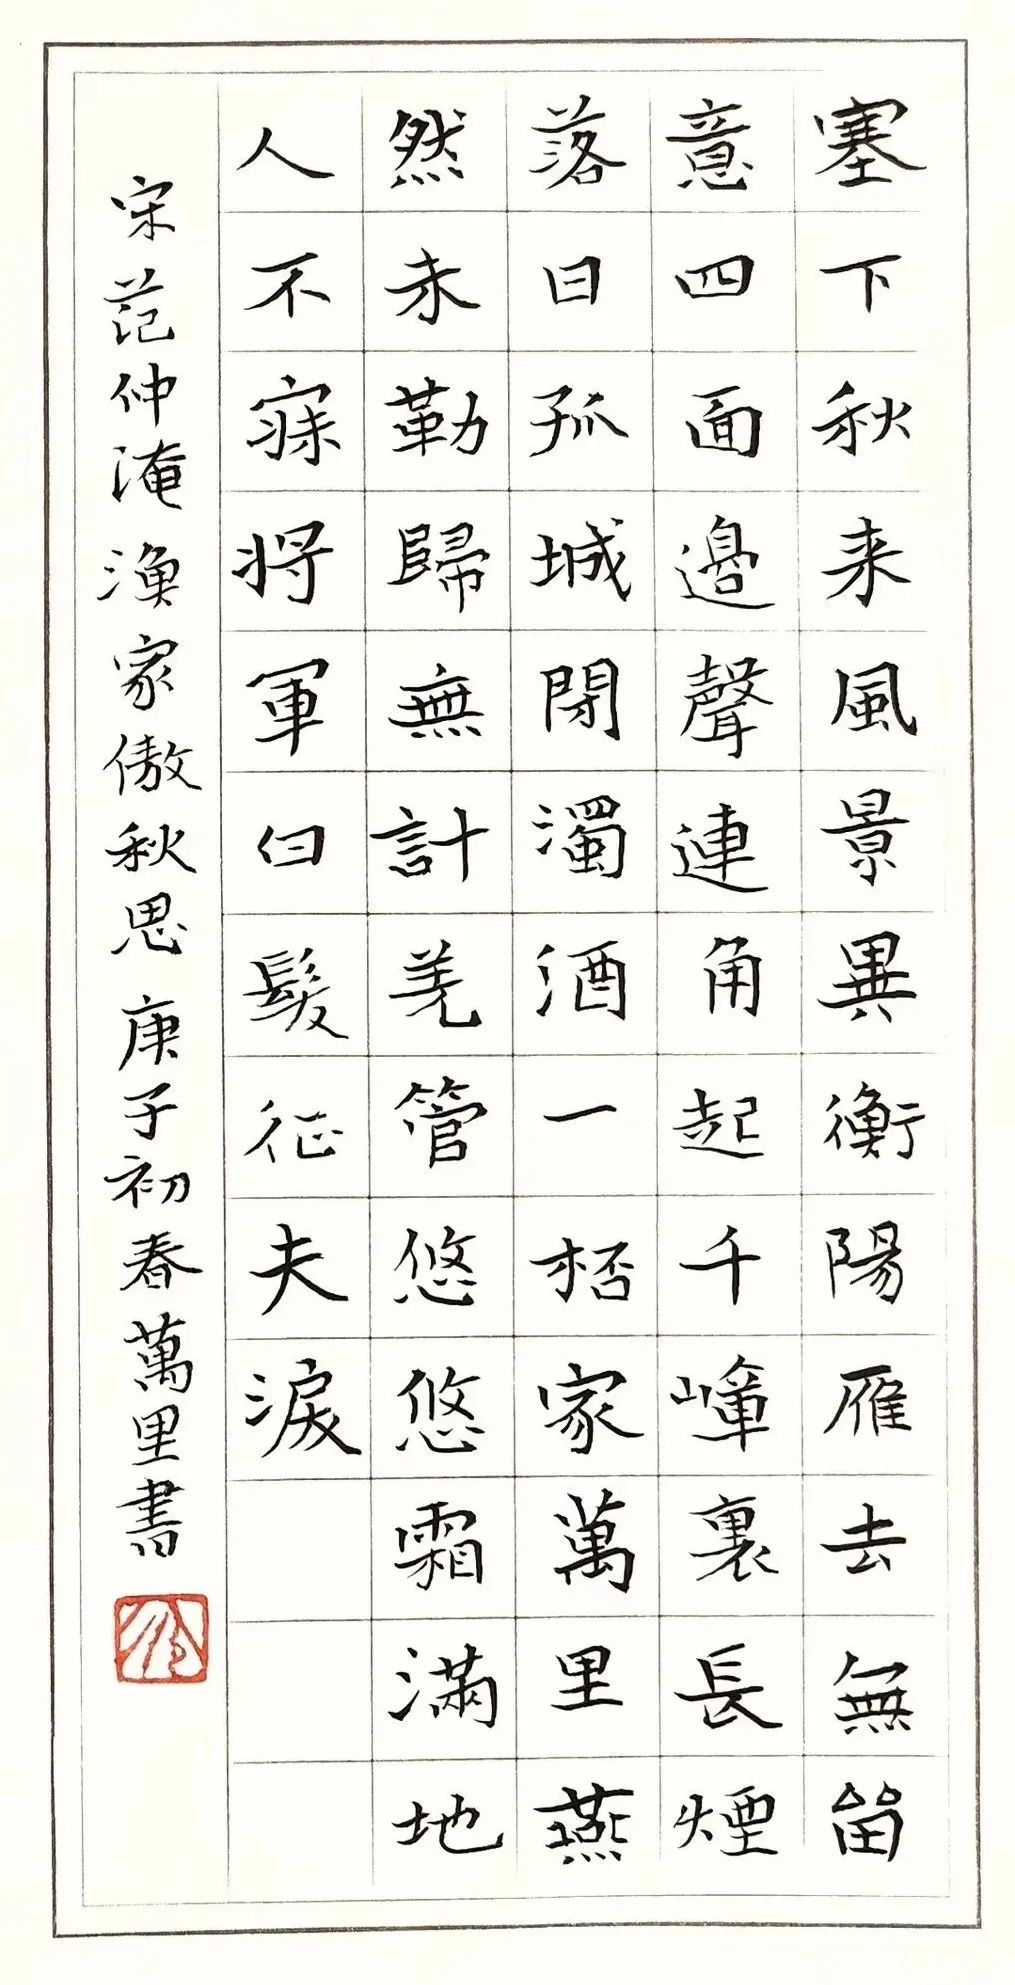 塞下秋来風景異衡陽雁去無留
意四面邊聲連角起千嶂裏長煙
落日孤城閉濁酒一桮家萬里燕
然未勒歸無計羌管悠悠霜滿地
人不寐将軍白髮征夫淚
宋范仲淹漁家傲秋思 庚子初春萬里書